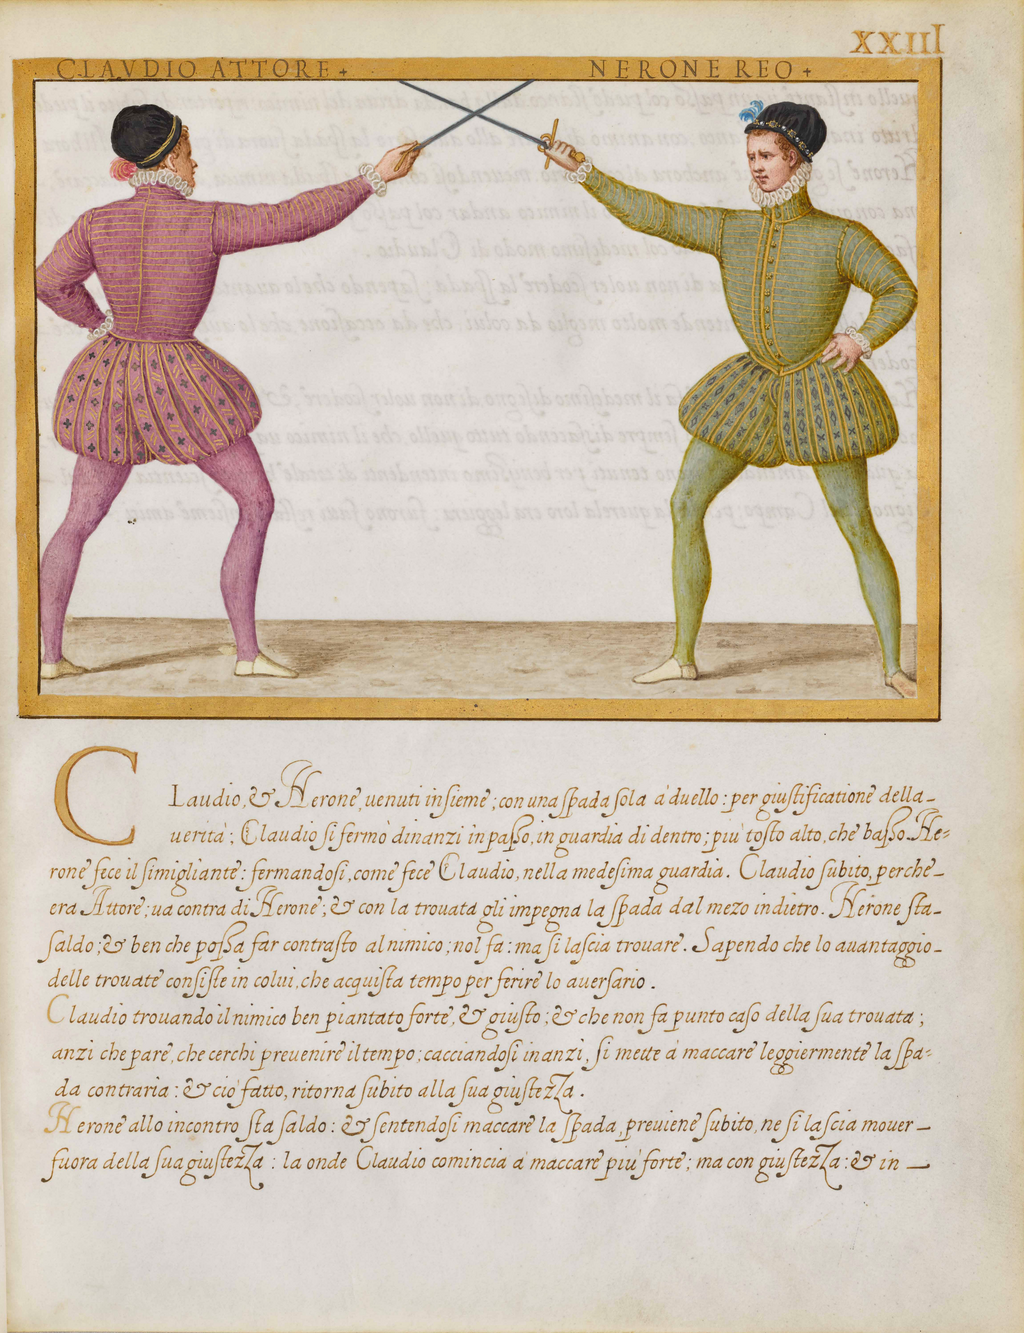 XXIII
CLAVDIO ATTORE +
NERONE REO +
CLaudio, & Nerone, uenuti insieme; con una spada sola à duello: per giustificatione della
uerità; Claudio si fermò dinanzi in passo, in guardia di dentro; più tosto alto, che basso. Ne=
rone fece il simigliante: fermandosi, come fece Claudio, nella medesima guardia. Claudio subito, perche
era Attore; ua contra di Nerone; & con la trouata gli impegna la spada dal mezo in dietro. Nerone sta
saldo; & ben che possa far contrasto al nimico; nol fa: ma si lascia trouare. Sapendo che lo auantaggio
delle trouate consiste in colui, che acquista tempo per ferire lo auersario.
Claudio trouando il nimico ben piantato forte, & giusto; & che non fa punto caso della sua trouata;
anzi che pare, che cerchi preuenire il tempo; cacciandosi inanzi, si mette à maccare leggiermente la spa=
da contraria: & ciò fatto, ritorna subito alla sua giustezza.
Nerone allo incontro sta saldo: & sentendosi maccare la spada, preuiene subito, ne si lascia mouer
fuora della sua giustezza: la onde Claudio comincia à maccare più forte; ma con giustezza: & in